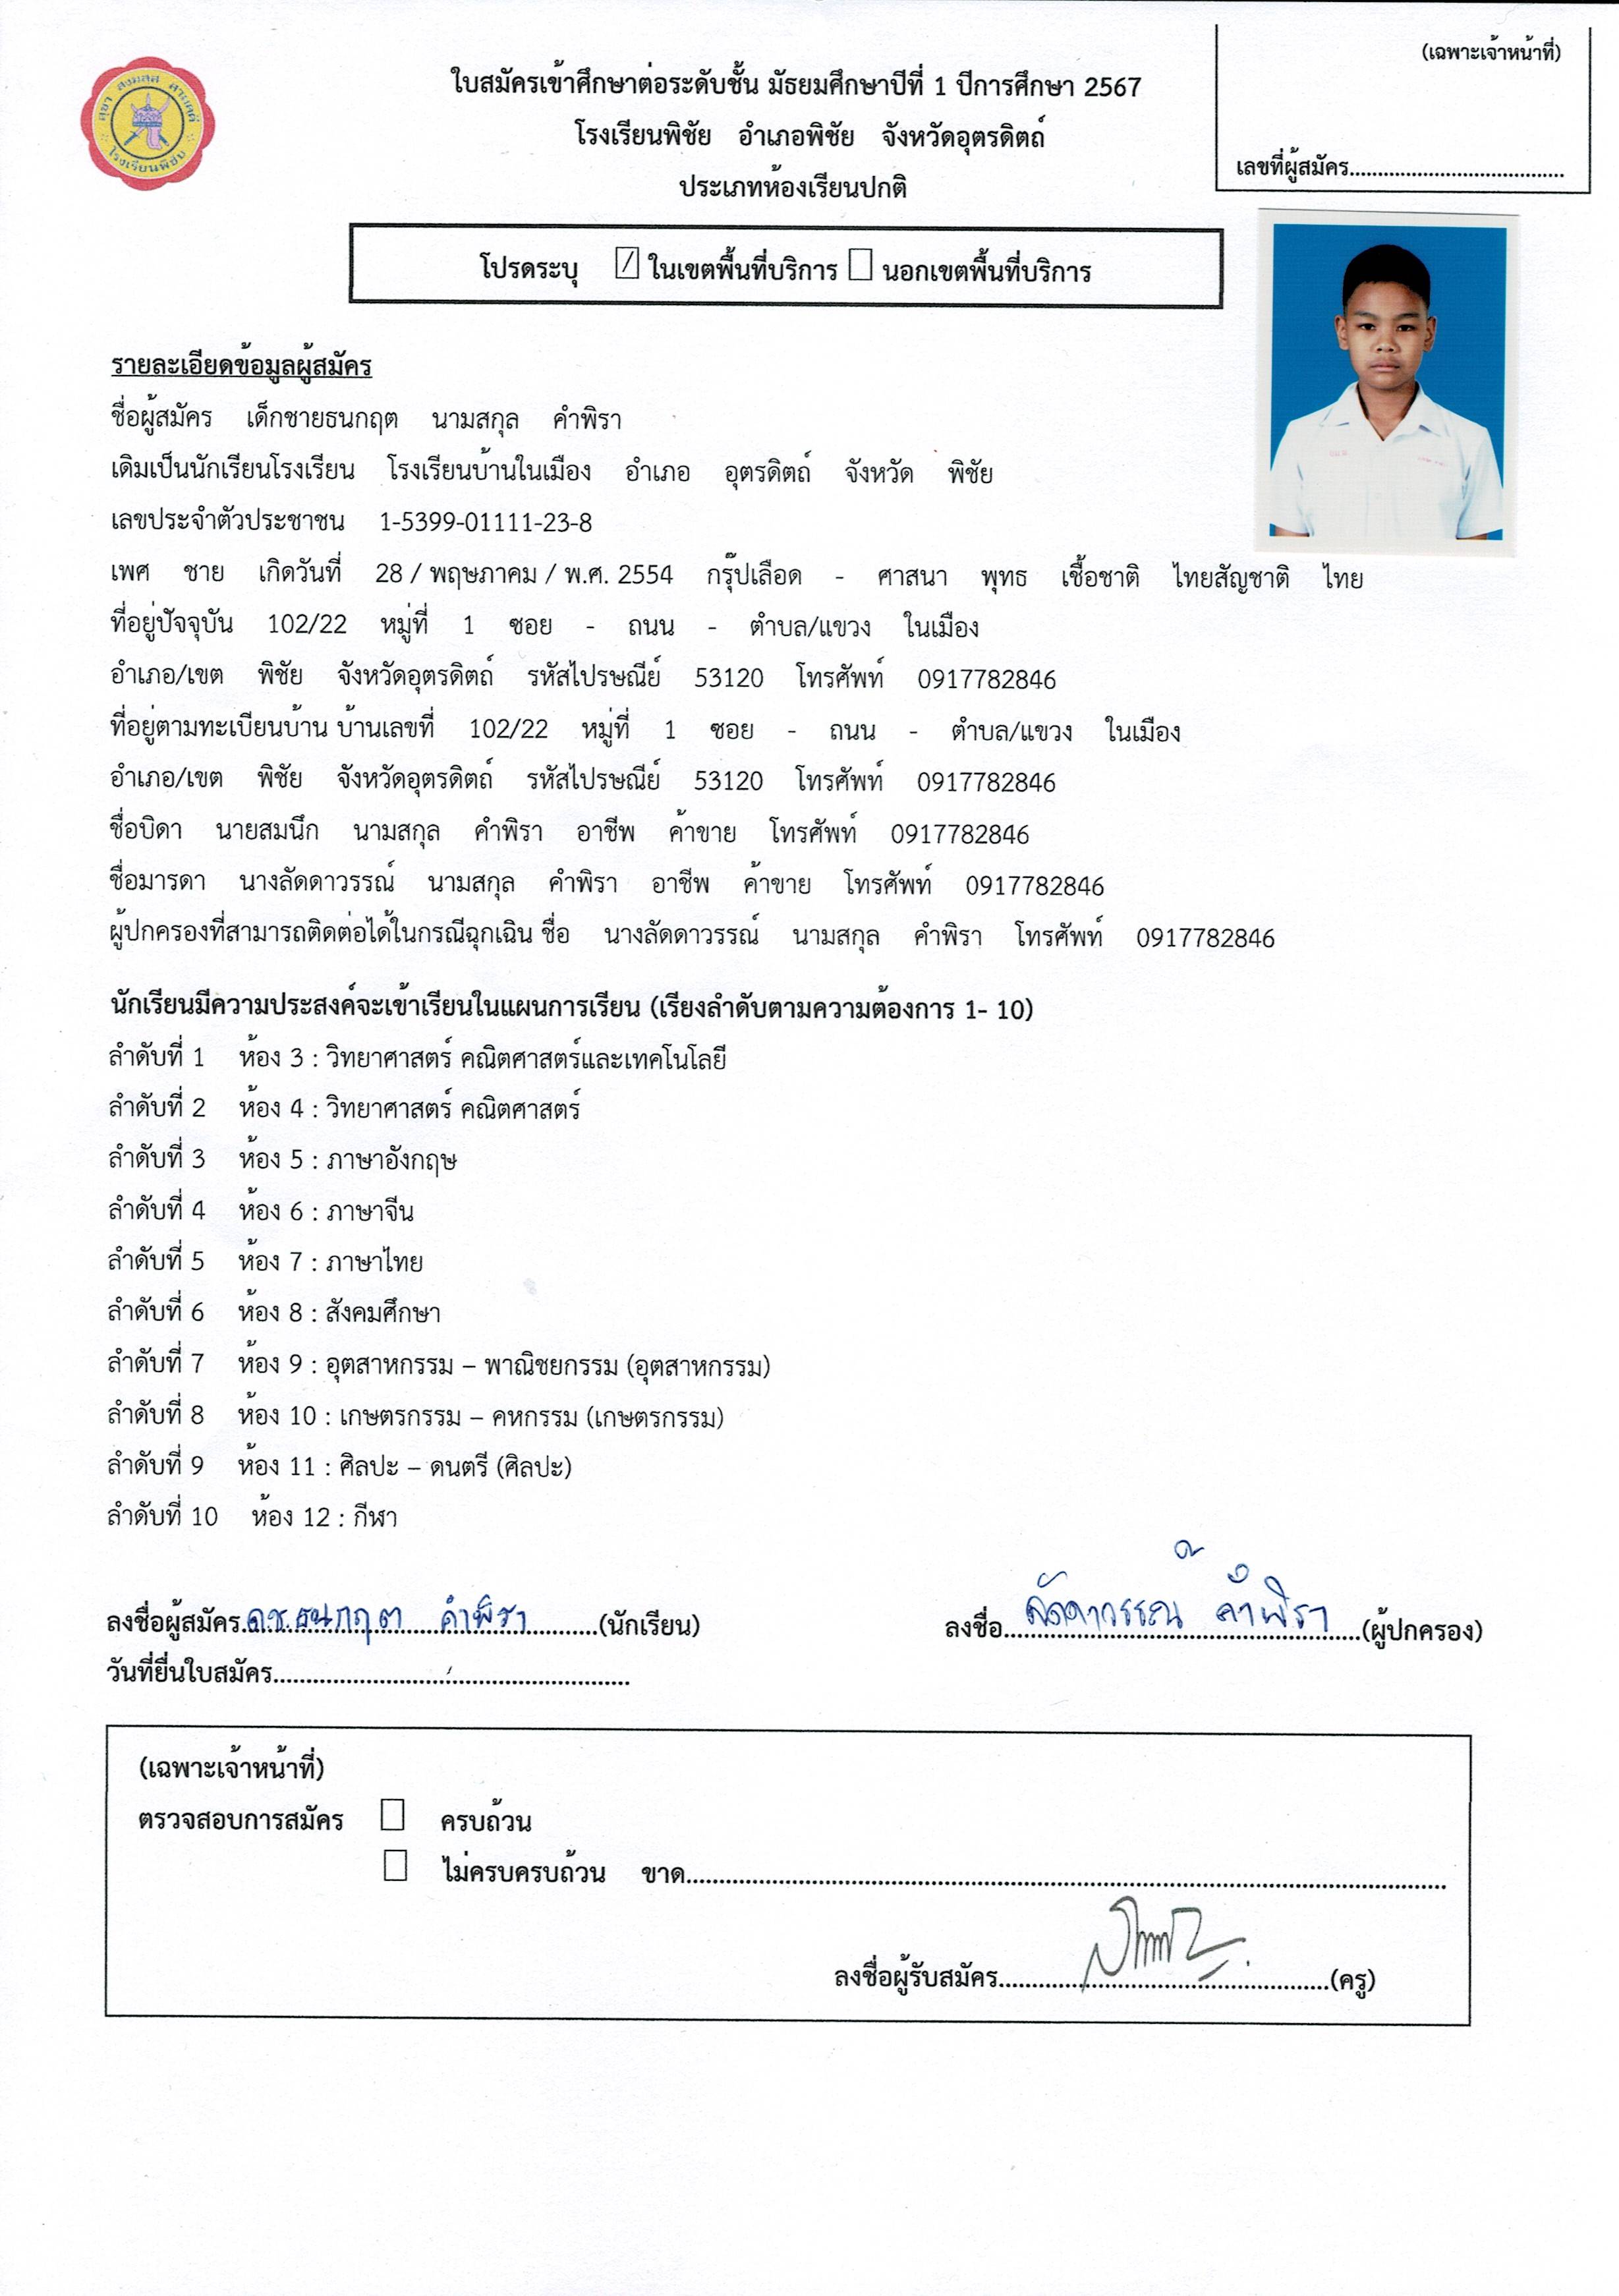 (เฉพาะเจ้าหน้าที่)
เลขที่ผู้สมัคร
ใบสมัครเข้าศึกษาต่อระดับชั้น มัธยมศึกษาปีที่ 1 ปีการศึกษา 2567
โรงเรียนพิชัย อำเภอพิชัย จังหวัดอุตรดิตถ์
ประเภทห้องเรียนปกติ
โรงเรียนพิชัย
โปรดระบุ ☑ ในเขตพื้นที่บริการ ☐ นอกเขตพื้นที่บริการ
รายละเอียดข้อมูลผู้สมัคร
ชื่อผู้สมัคร เด็กชายธนกฤต นามสกุล คำพิรา
เดิมเป็นนักเรียนโรงเรียน โรงเรียนบ้านในเมือง อำเภอ อุตรดิตถ์ จังหวัด พิชัย
เลขประจำตัวประชาชน 1-5399-01111-23-8
เพศ ชาย เกิดวันที่ 28 / พฤษภาคม / พ.ศ. 2554 กรุ๊ปเลือด - ศาสนา พุทธ เชื้อชาติ ไทยสัญชาติ ไทย
ที่อยู่ปัจจุบัน 102/22 หมู่ที่ 1 ซอย - ถนน - ตำบล/แขวง ในเมือง
อำเภอ/เขต พิชัย จังหวัดอุตรดิตถ์ รหัสไปรษณีย์ 53120 โทรศัพท์ 0917782846
ที่อยู่ตามทะเบียนบ้าน บ้านเลขที่ 102/22 หมู่ที่ 1 ซอย - ถนน - ตำบล/แขวง ในเมือง
อำเภอ/เขต พิชัย จังหวัดอุตรดิตถ์ รหัสไปรษณีย์ 53120 โทรศัพท์ 0917782846
ชื่อบิดา นายสมนึก นามสกุล คำพิรา อาชีพ ค้าขาย โทรศัพท์ 0917782846
ชื่อมารดา นางลัดดาวรรณ์ นามสกุล คำพิรา อาชีพ ค้าขาย โทรศัพท์ 0917782846
ผู้ปกครองที่สามารถติดต่อได้ในกรณีฉุกเฉิน ชื่อ นางลัดดาวรรณ์ นามสกุล คำพิรา โทรศัพท์ 0917782846
นักเรียนมีความประสงค์จะเข้าเรียนในแผนการเรียน (เรียงลำดับตามความต้องการ 1- 10)
ลำดับที่ 1 ห้อง 3 : วิทยาศาสตร์ คณิตศาสตร์และเทคโนโลยี
ลำดับที่ 2 ห้อง 4 : วิทยาศาสตร์ คณิตศาสตร์
ลำดับที่ 3 ห้อง 5 : ภาษาอังกฤษ
ลำดับที่ 4 ห้อง 6 : ภาษาจีน
ลำดับที่ 5 ห้อง 7 : ภาษาไทย
ลำดับที่ 6 ห้อง 8 : สังคมศึกษา
ลำดับที่ 7 ห้อง 9 : อุตสาหกรรม – พาณิชยกรรม (อุตสาหกรรม)
ลำดับที่ 8 ห้อง 10 : เกษตรกรรม – คหกรรม (เกษตรกรรม)
ลำดับที่ 9 ห้อง 11 : ศิลปะ – ดนตรี (ศิลปะ)
ลำดับที่ 10 ห้อง 12 : กีฬา
ลงชื่อผู้สมัคร ด.ช.ธนกฤต คำพิรา (นักเรียน) ลงชื่อ ลัดดาวรรณ์ คำพิรา (ผู้ปกครอง)
วันที่ยื่นใบสมัคร
(เฉพาะเจ้าหน้าที่)
ตรวจสอบการสมัคร ☐ ครบถ้วน
☐ ไม่ครบครบถ้วน ขาด
ลงชื่อผู้รับสมัคร (ครู)